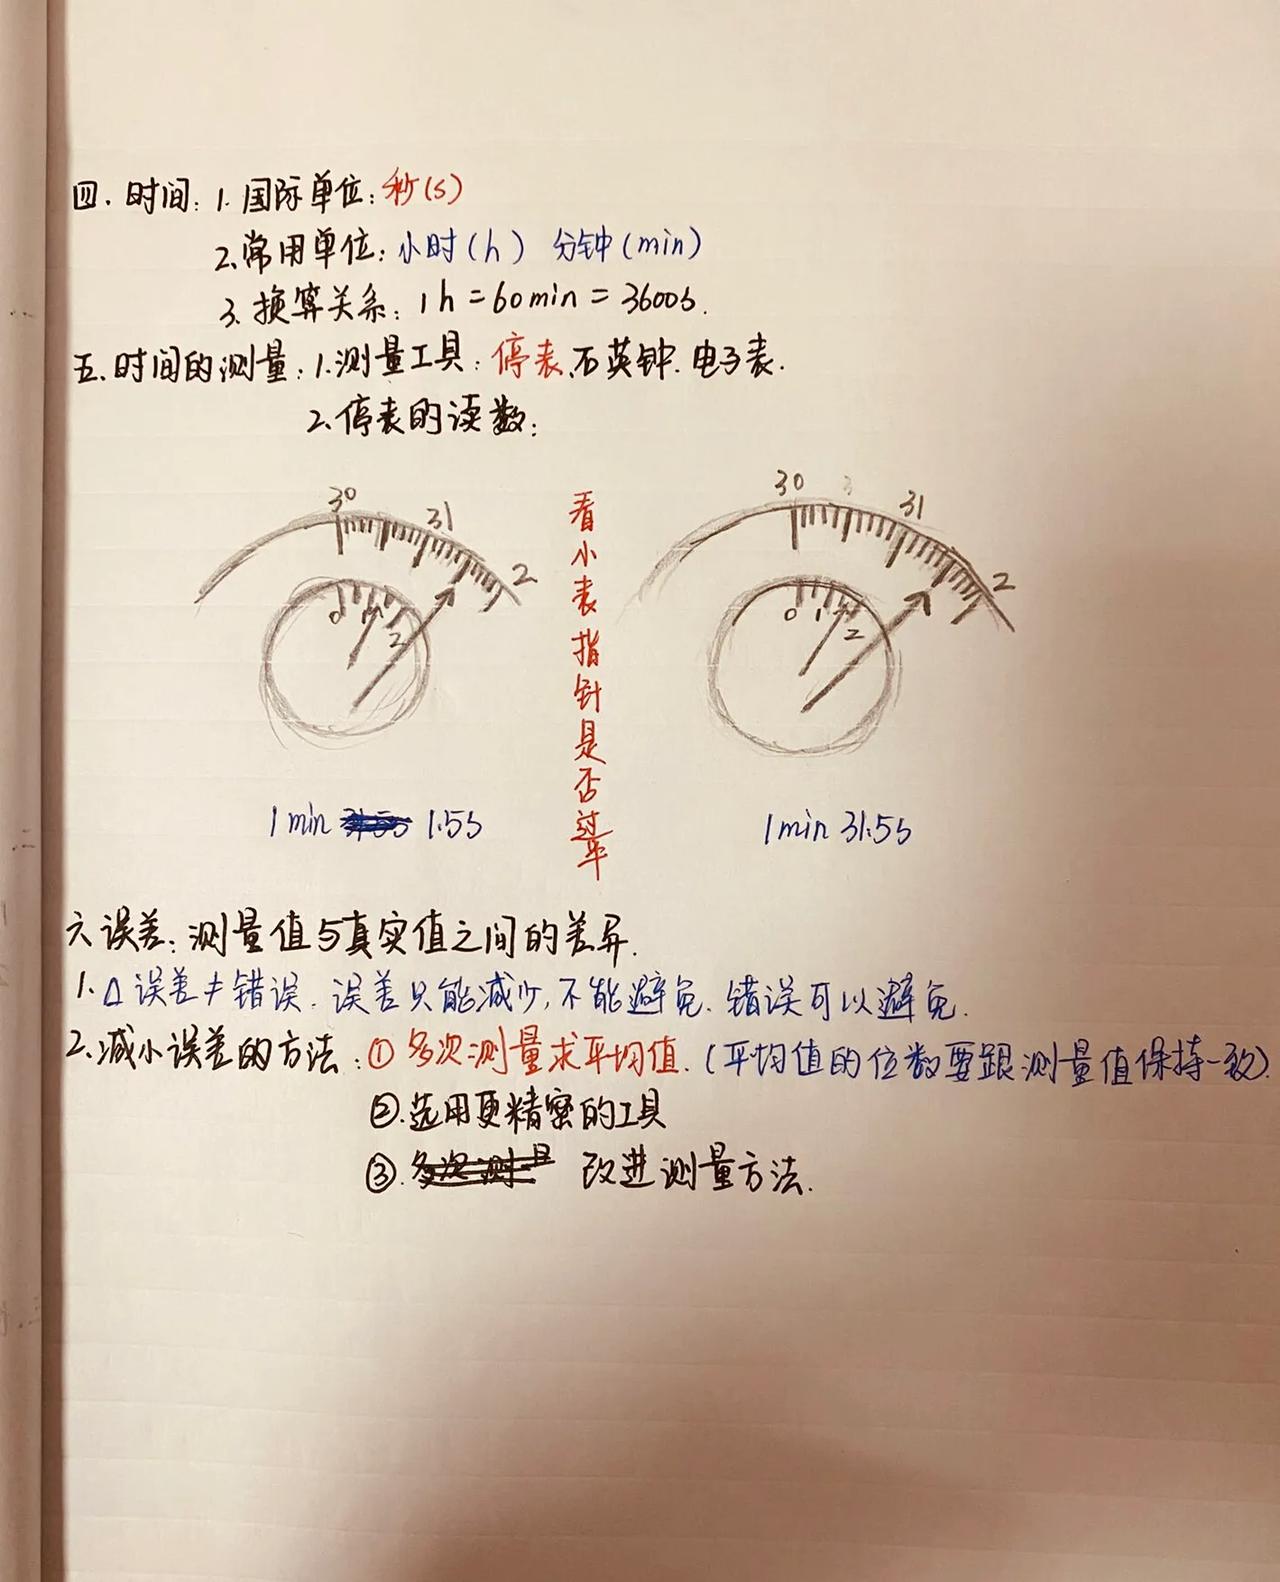 四. 时间: 1. 国际单位: 秒(s)
2. 常用单位: 小时(h) 分钟(min)
3. 换算关系: 1h=60min=3600s.
五. 时间的测量: 1. 测量工具: 停表、石英钟. 电子表.
2. 停表的读数:
30
31
2
0
1
2
看小表指针是否过半
30
31
2
0
1
2
1min 1.5s
1min 31.5s
六 误差: 测量值与真实值之间的差异.
1. △ 误差≠错误. 误差只能减少, 不能避免. 错误可以避免.
2. 减小误差的方法: ① 多次测量求平均值. (平均值的位数要跟测量值保持一致).
②. 选用更精密的工具
③. 多次测量 改进测量方法.